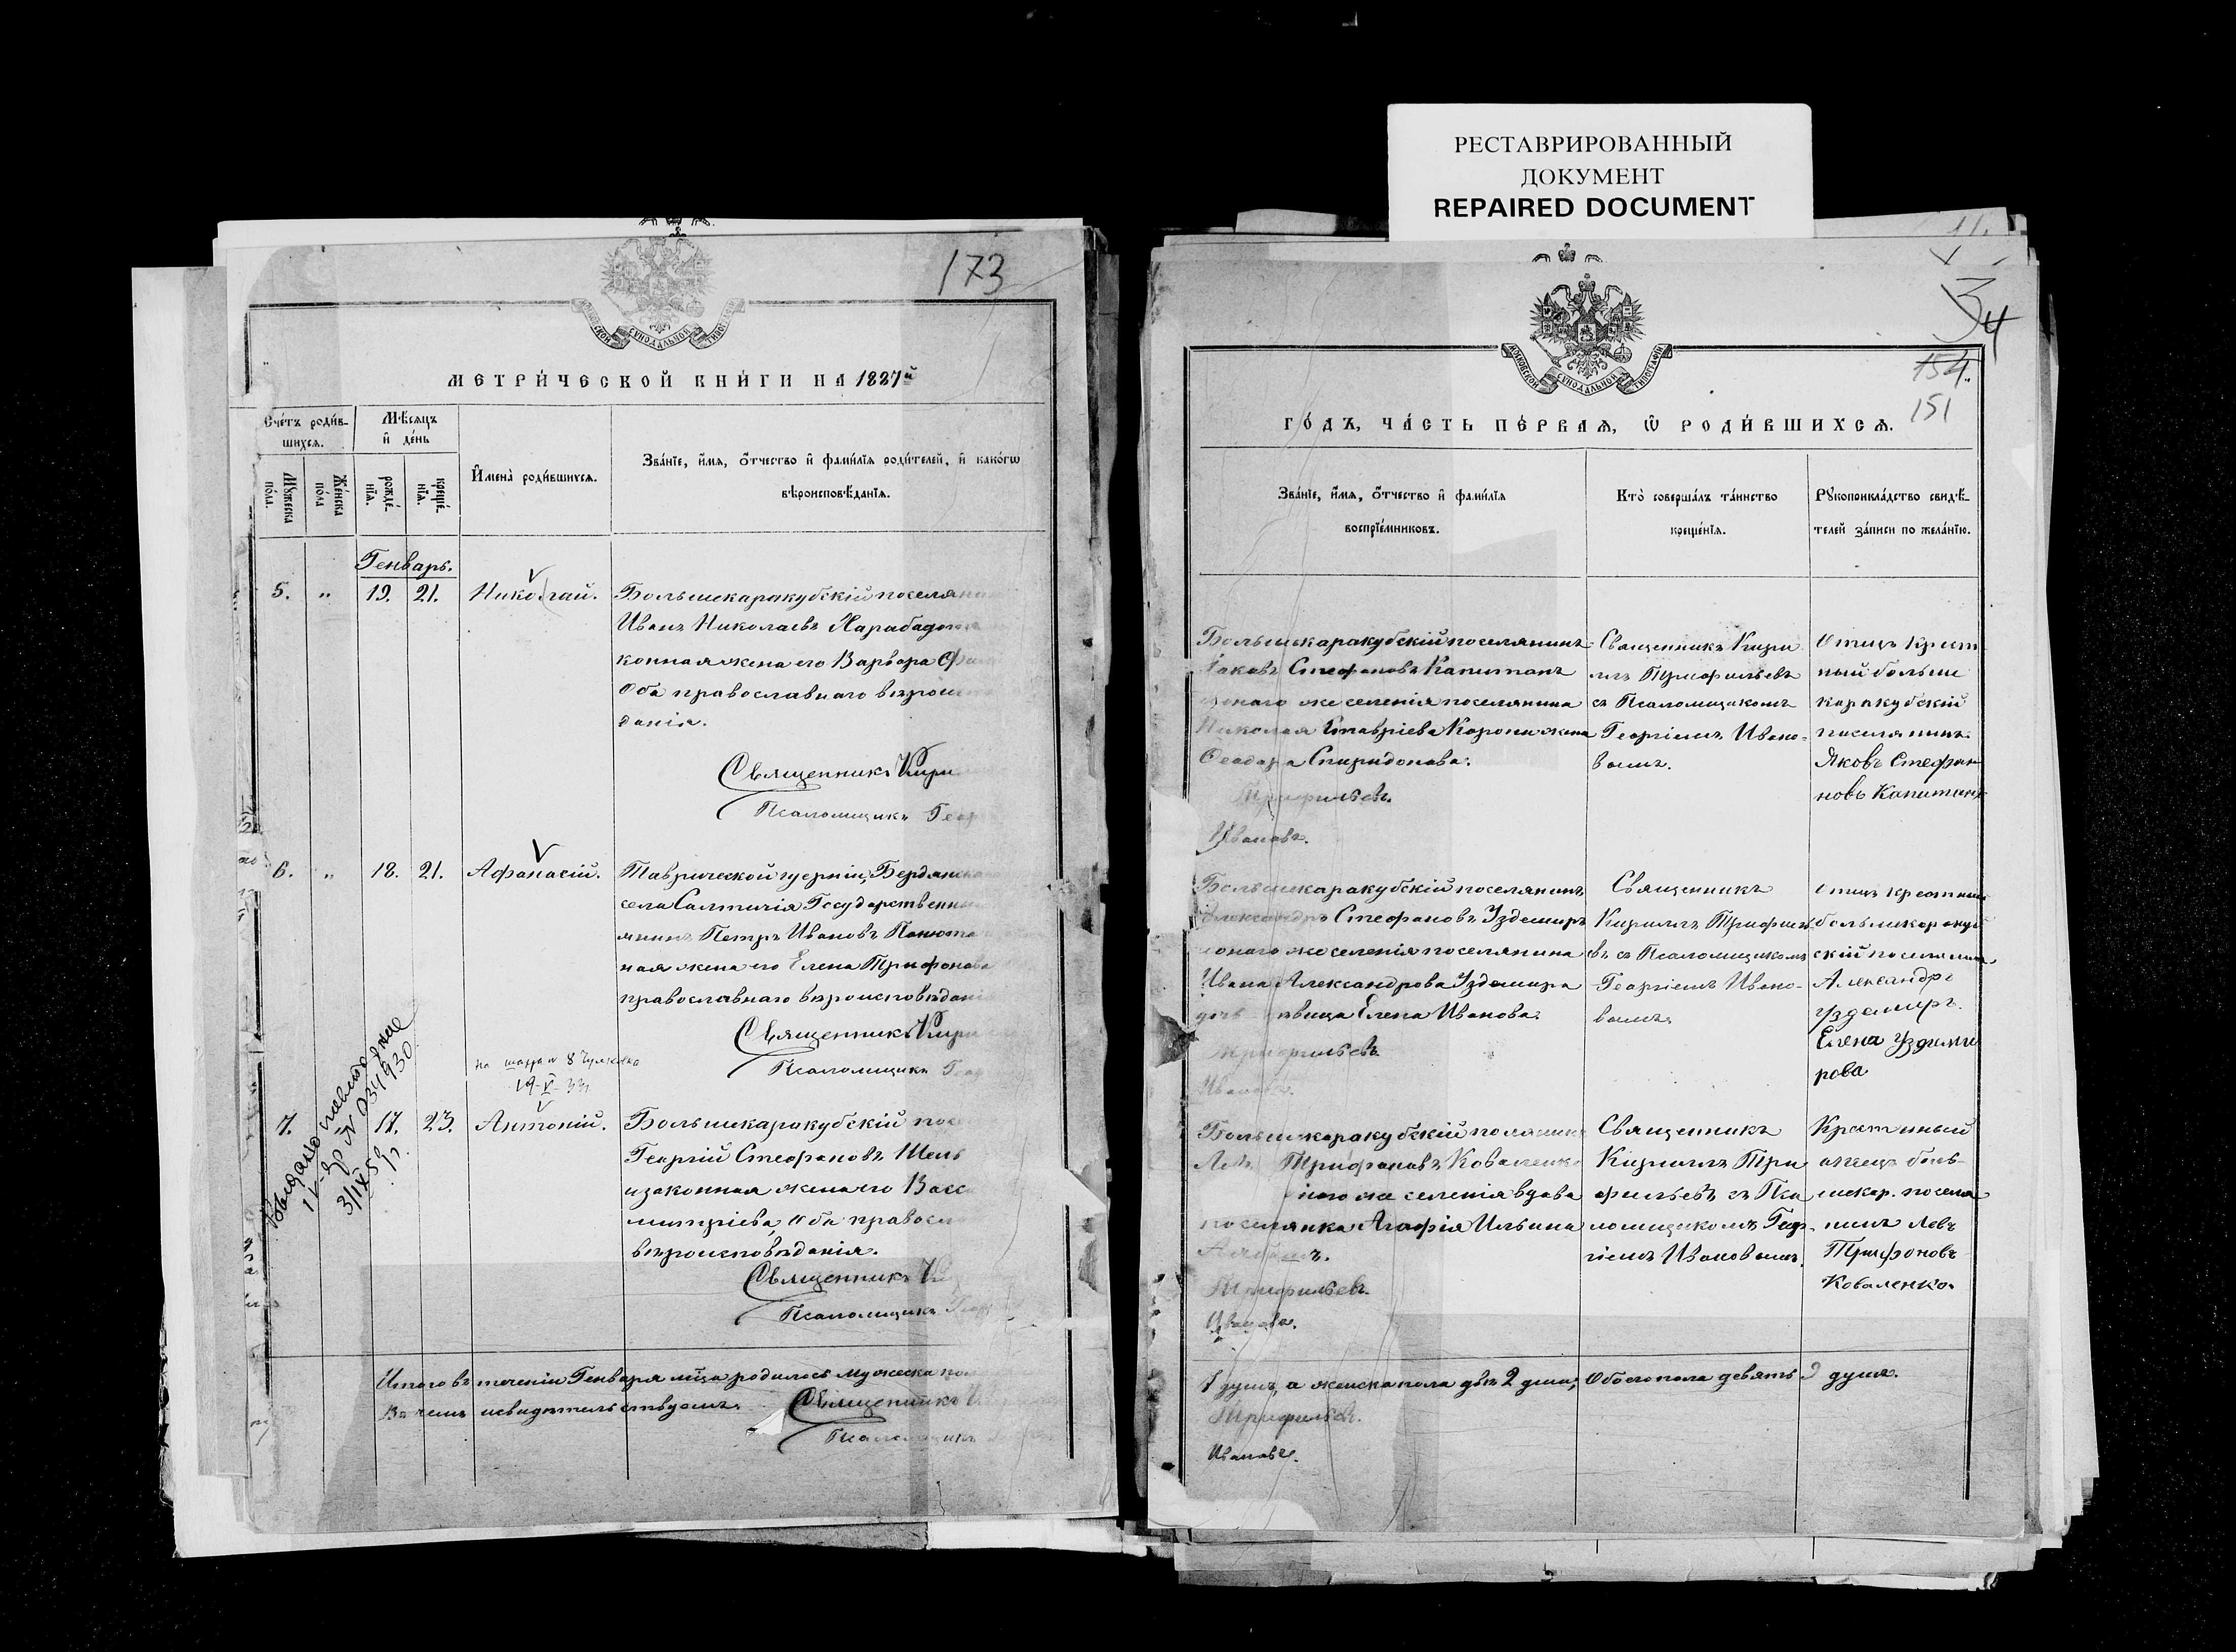 РЕСТАВРИРОВАННЫЙ
ДОКУМЕНТ
REPAIRED DOCUMENT
173
МЕТРИ́ЧЕСКОЙ КНИ́ГИ НА 1887й
Сче́тъ роди́в-
шихся.
Мѣ́сяцъ
и҆ де́нь
Мꙋжеска
по́ла.
Же́нска
по́ла
рожде́-
нїѧ.
креще́-
нїѧ.
И҆мена̀ роди́вшихсѧ.
Зва́нїе, и҆́мѧ, ѻ҆́тчество и҆ фами́лїѧ роди́телей, и҆ како́гѡ
вѣроисповѣ́данїѧ.
Генварь.
5. „ 19. 21. Николай. Большекаракубскій поселян
Иванъ Николаевъ
конная жена его Варвара
Оба православнаго вѣроис
данія.
Священникъ Кири
Псаломщикъ Геор
6. „ 18. 21. Афанасій. Таврической губерніи, Бердянска
села Салтичія Государственны
янинъ Петръ Ивановъ
ная жена его Елена Трифонова
православнаго вѣроисповѣдані
Священникъ Кири
Псаломщикъ Геор
19-V-33
7. 17. 23. Антоній. Большекаракубскій пос
Георгій Стефановъ Шель
и законная жена его Васс
митріева, Оба правосл
вѣроисповѣданія.
Священникъ
Псаломщикъ Геор
Выдано повторное
3/IX 59 г.
Итого въ теченіи Генваря мѣца родилось мужеска пол
Въ чемъ и свидѣтельствуемъ. Священникъ
Псаломщикъ
34
154.
151
МОСКОВСКОЙ СѴНОДАЛЬНОЙ ТИПОГРАФІИ
ГО́ДЪ, ЧА́СТЬ ПЕ́РВАѦ, Ѡ҆ РОДИ́ВШИХСѦ.
Зва́нїе, и҆́мѧ, ѻ҆́тчество и҆ фами́лїѧ
воспрїе́мниковъ.
Кто̀ соверша́лъ та́инство
креще́нїѧ.
Рꙋкоприкла́дство свидѣ́-
телей за́писи по жела́нїю.
Большекаракубскій поселянинъ
Іаковъ Стефановъ Капитанъ
онаго же селенія поселянина
Николая Ставріева Корони жена
Феодора Спиридонова.
Трифильевъ.
Ивановъ.
Священникъ Кири
лъ Трифильевъ
съ Псаломщикомъ
Георгіемъ Ивано-
вымъ.
Отецъ крест
ный больше
каракубскій
поселянинъ
Яковъ Стефан
новъ Капитанъ
Большекаракубскій поселянинъ
Александръ Стефановъ Уздемиръ
онаго же селенія поселянина
Ивана Александрова Уздемира
дочь дѣвица Елена Иванова.
Трифильевъ
Ивановъ.
Священникъ
Кириллъ Трифиль
въ съ Псаломщикомъ
Георгіемъ Ивано-
вымъ.
Отецъ крестный
большекаракуб
скій поселянинъ
Александръ
Уздемиръ.
Елена Уздеми
рова
Большекаракубскій поселянин
Левъ Трифоновъ Коваленко
онаго же селенія вдова
поселянка Агафія Ильина
Трифильевъ.
Ивановъ.
Священникъ
Кириллъ Три
фильевъ съ Пса
ломщикомъ Геор-
гіемъ Ивановымъ.
Крестный
отецъ боль-
шекар. поселя
нинъ Левъ
Трифоновъ
Коваленко.
душъ, а женска пола двѣ 2 душ; Обоего пола девять 9 душъ.
Трифильевъ.
Ивановъ.